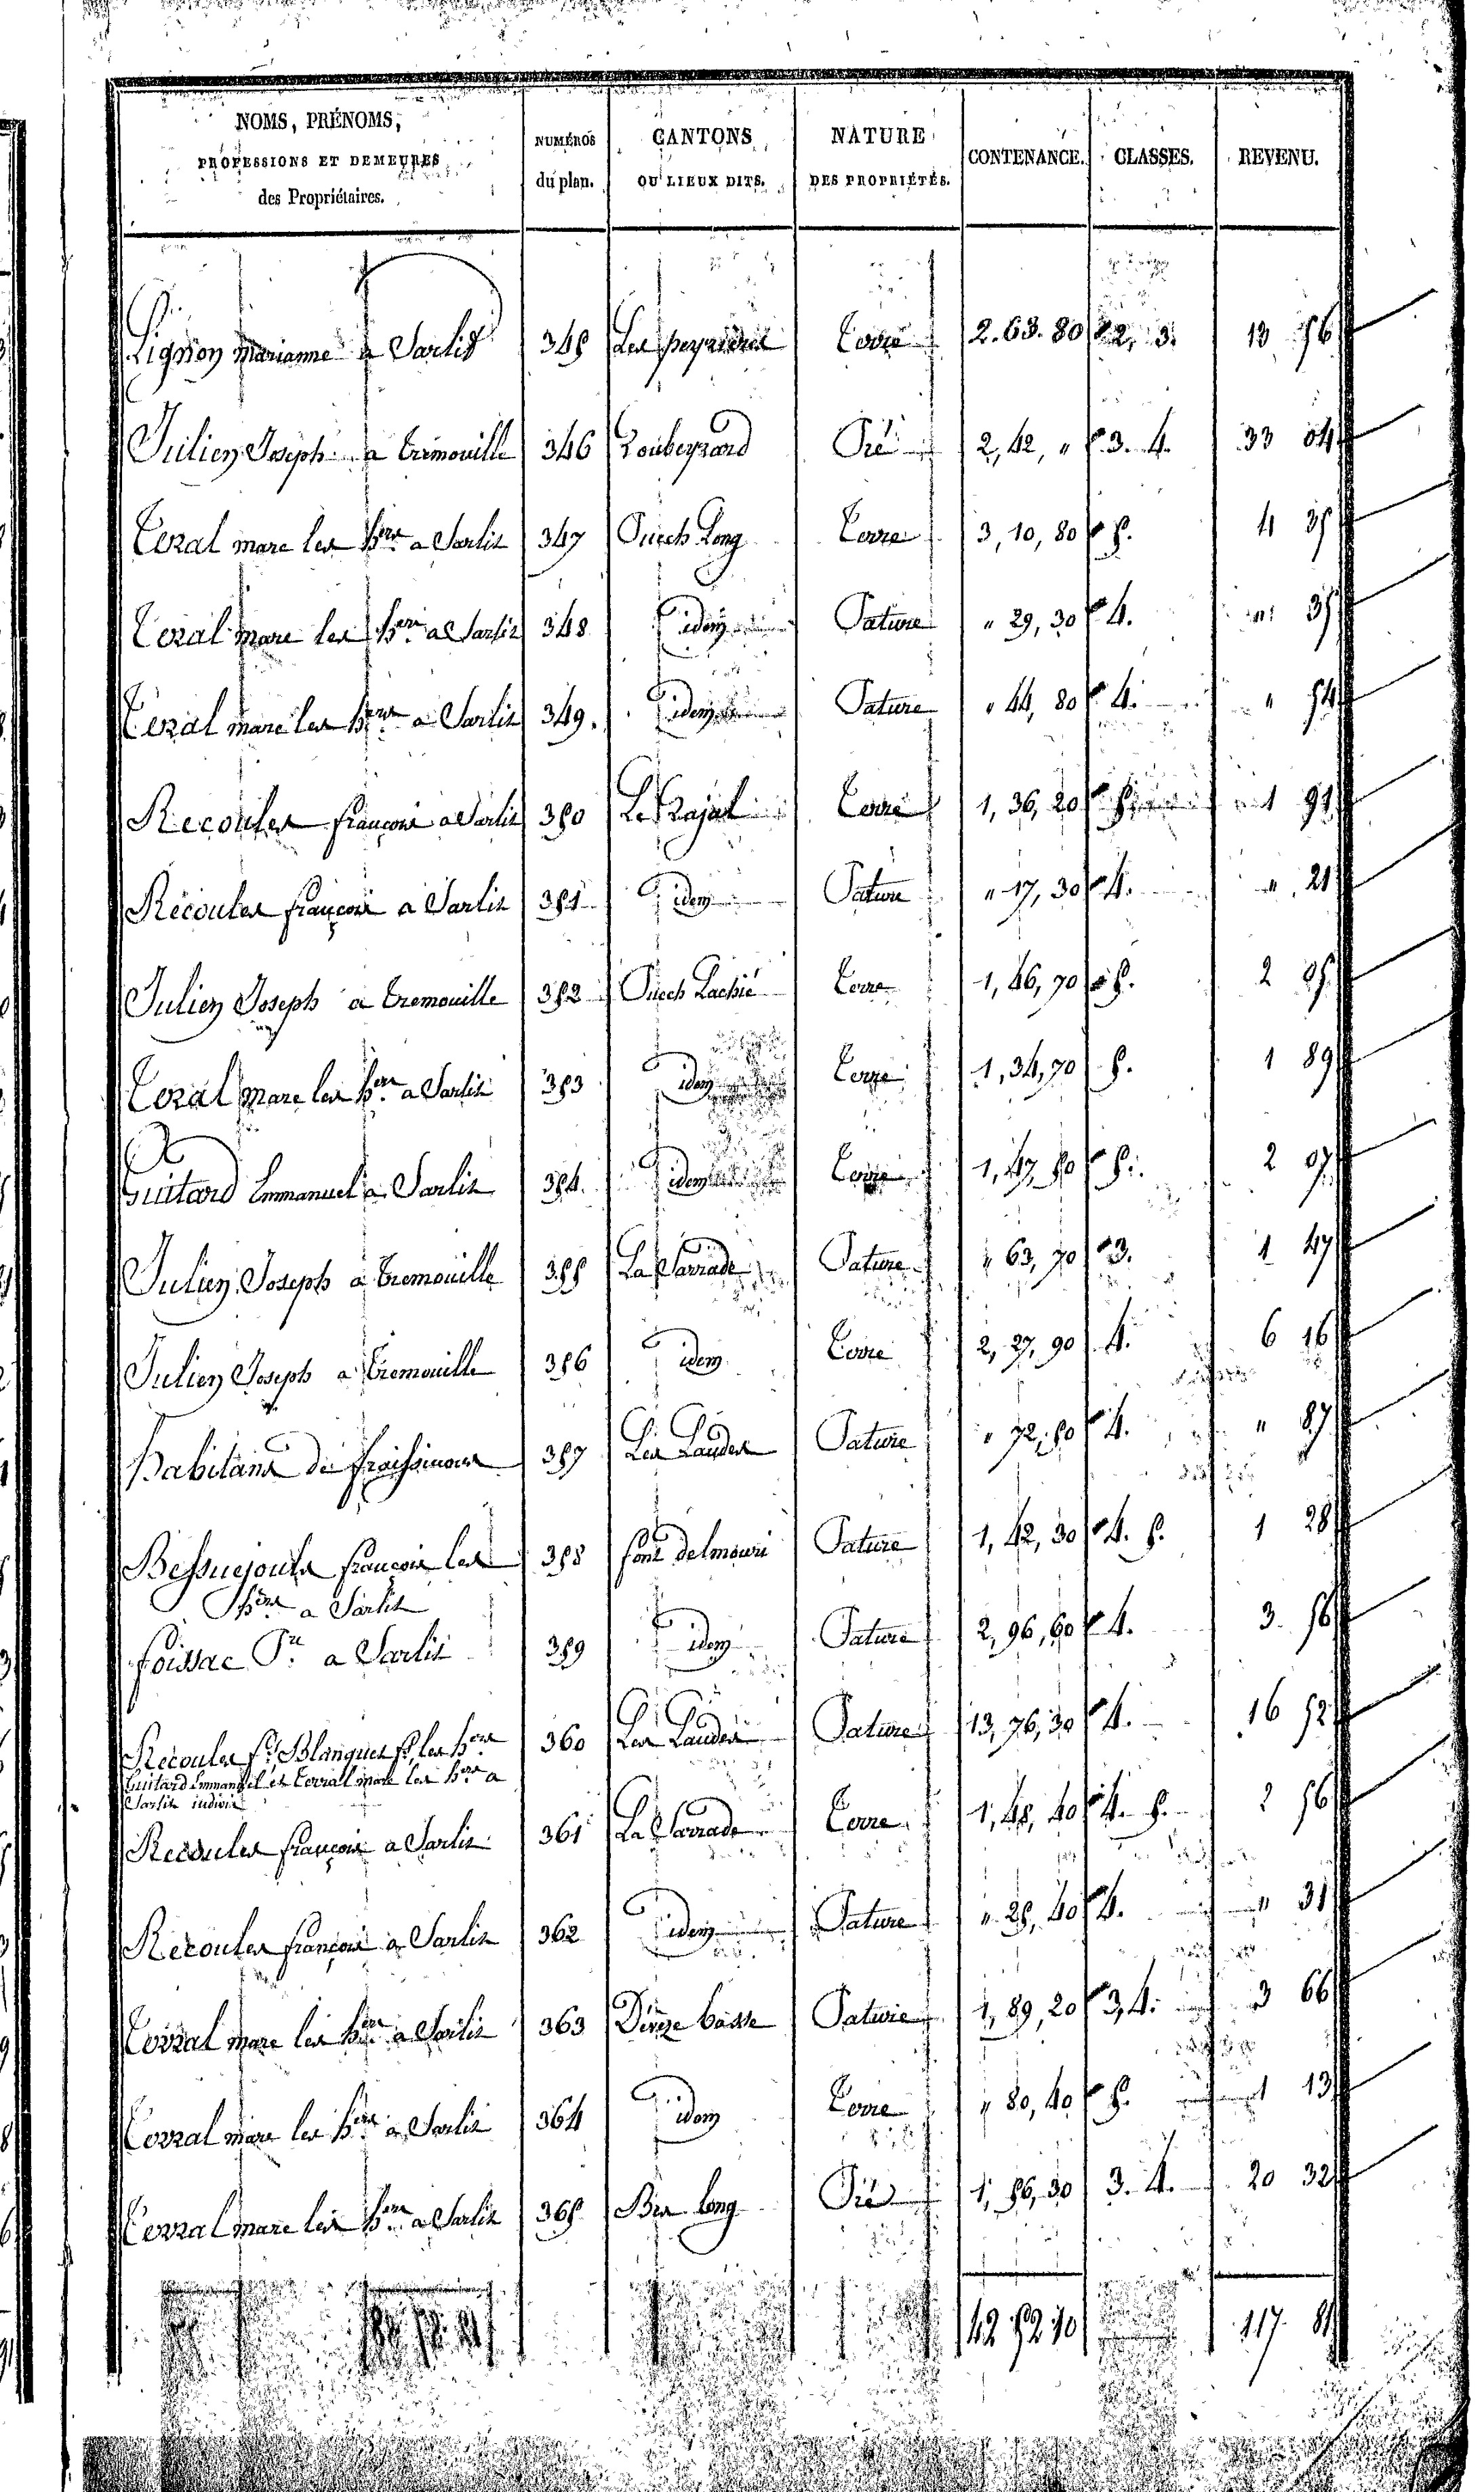 NOMS, PRÉNOMS, PROFESSIONS ET DEMEURES des Propriétaires. | NUMÉROS du plan. | CANTONS OU LIEUX DITS. | NATURE DES PROPRIÉTÉS. | CONTENANCE. | CLASSES. | REVENU.
Lignon marianne a Sarlit | 345 | Les peyrieres | Terre | 2. 63. 80 | 2, 3. | 13 56
Julien Joseph a tremouille | 346 | Loubeyrard | Pré | 2, 42, " | 3. 4. | 33 04
Terral marc les hers a Sarlit | 347 | Puech Long | Terre | 3, 10, 80 | 5. | 4 35
Terral marc les hers a Sarlit | 348 | idem | Pature | " 29, 30 | 4. | " 35
Terral marc les hers a Sarlit | 349. | idem | Pature | " 44, 80 | 4. | " 54
Recoules françois a Sarlit | 350 | Le Rajal | Terre | 1, 36, 20 | 5. | 1 91
Recoules françois a Sarlit | 351 | idem | Pature | " 17, 30 | 4. | " 21
Julien Joseph a tremouille | 352 | Puech Lachié | Terre | 1, 46, 70 | 5. | 2 05
Terral marc les hers a Sarlit | 353 | idem | Terre | 1, 34, 70 | 5. | 1 89
Guitard Emmanuel a Sarlit | 354. | idem | Terre | 1, 47, 50 | 5. | 2 07
Julien Joseph a tremouille | 355 | La Sarrade | Pature | " 63, 70 | 3. | 1 47
Julien Joseph a tremouille | 356 | idem | Terre | 2, 27, 90 | 4. | 6 16
habitans de fraissinous | 357 | Les Landes | Pature | " 72, 50 | 4. | " 87
Bessuejouls françois les | 358 | font delmouri | Pature | 1, 42, 30 | 4. 5. | 1 28
hers a Sarlit
foissac Pre a Sarlit | 359 | idem | Pature | 2, 96, 60 | 4. | 3. 56
Recoules fs, Blanquet fs, les hers | 360 | Les Landes | Pature | 13, 76, 30 | 4. | 16 52
Guitard Emmanuel et terral marc les hers a
Sarlit indivis
Recoules françois a Sarlit | 361 | La Sarrade | Terre | 1, 45, 40 | 4. 5. | 2 56
Recoules françois a Sarlit | 362 | idem | Pature | " 25, 40 | 4. | " 31
Terral marc les hers a Sarlit | 363 | Deveze basse | Pature | 1, 89, 20 | 3, 4. | 3 66
Terral marc les hers a Sarlit | 364 | idem | Terre | " 80, 40 | 5. | 1 13
Terral marc les hers a Sarlit | 365 | Bes long | Pré | 1, 56, 30 | 3. 4. | 20 32
42 52 10 | 117. 81